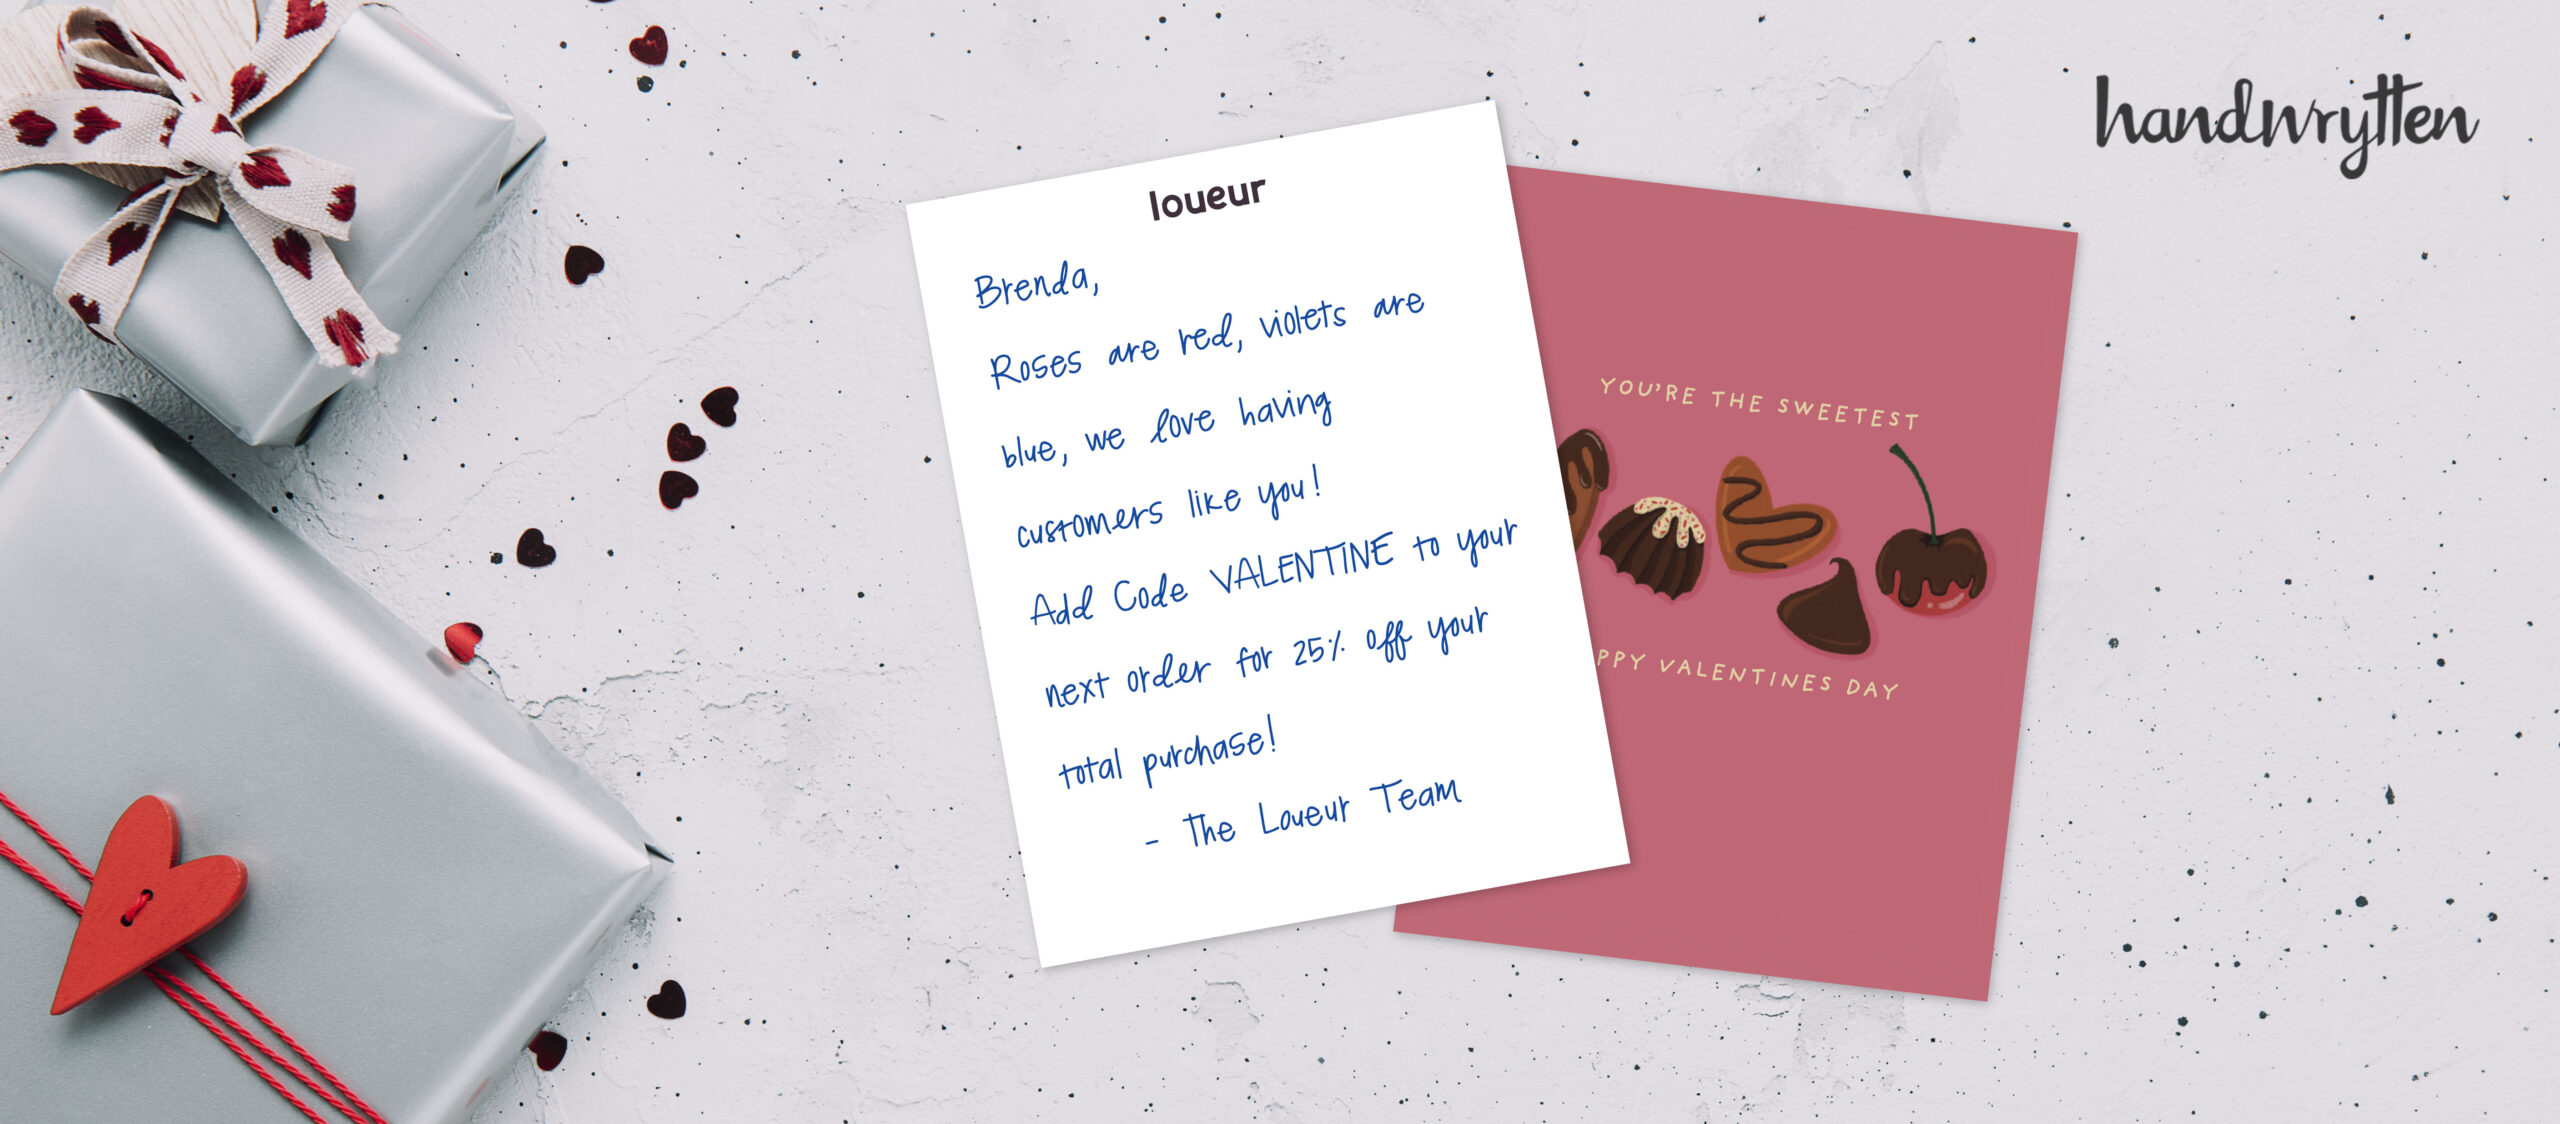 handwrytten
loueur
Brenda,
Roses are red, violets are
blue, we love having
customers like you!
Add Code VALENTINE to your
next order for 25% off your
total purchase!
- The Loueur Team
YOU'RE THE SWEETEST
PPY VALENTINES DAY